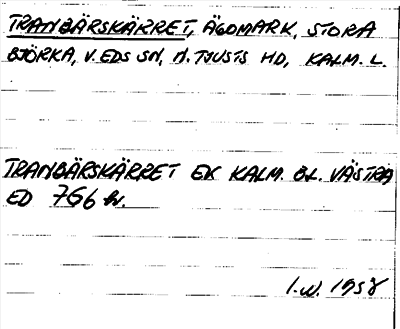 TRANBÄRSKÄRRET, ÄGOMARK, STORA
BJÖRKA, V. EDS SN, N. TJUSTS HD, KALM. L.
TRANBÄRSKÄRRET EK KALM. BL. VÄSTRA
ED 7G6 hr.
I.W. 1958